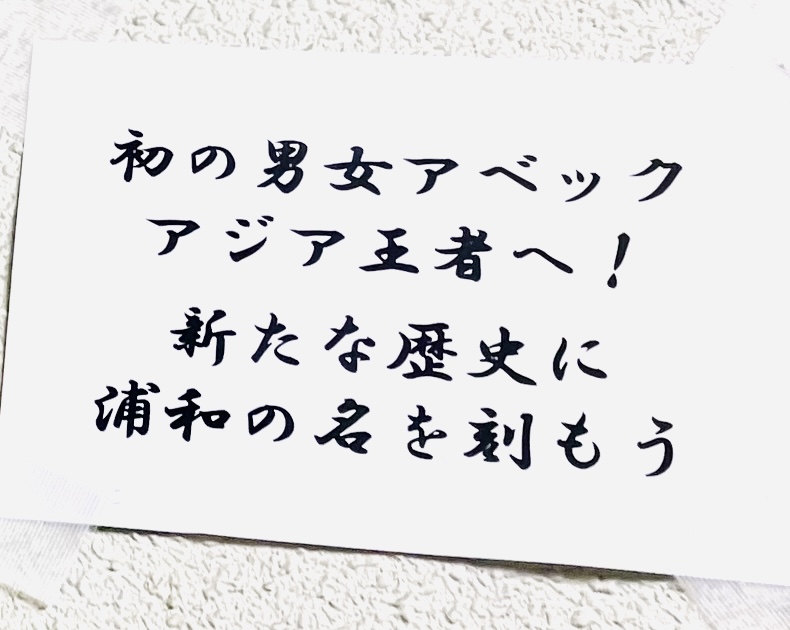 初の男女アベック
アジア王者へ!
新たな歴史に
浦和の名を刻もう